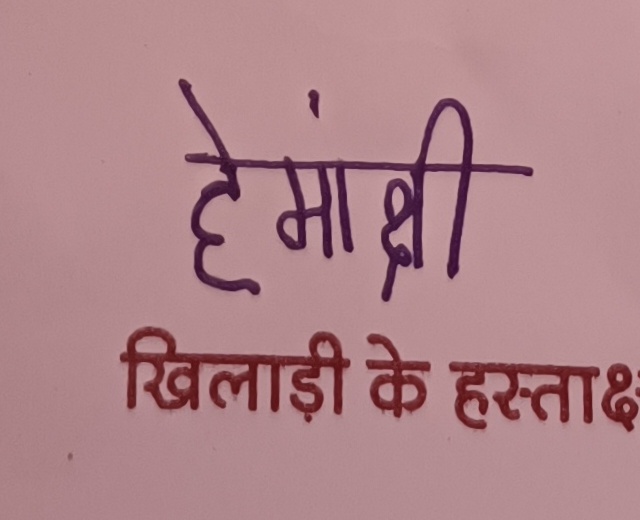 हेमांक्षी
खिलाड़ी के हस्ताक्ष